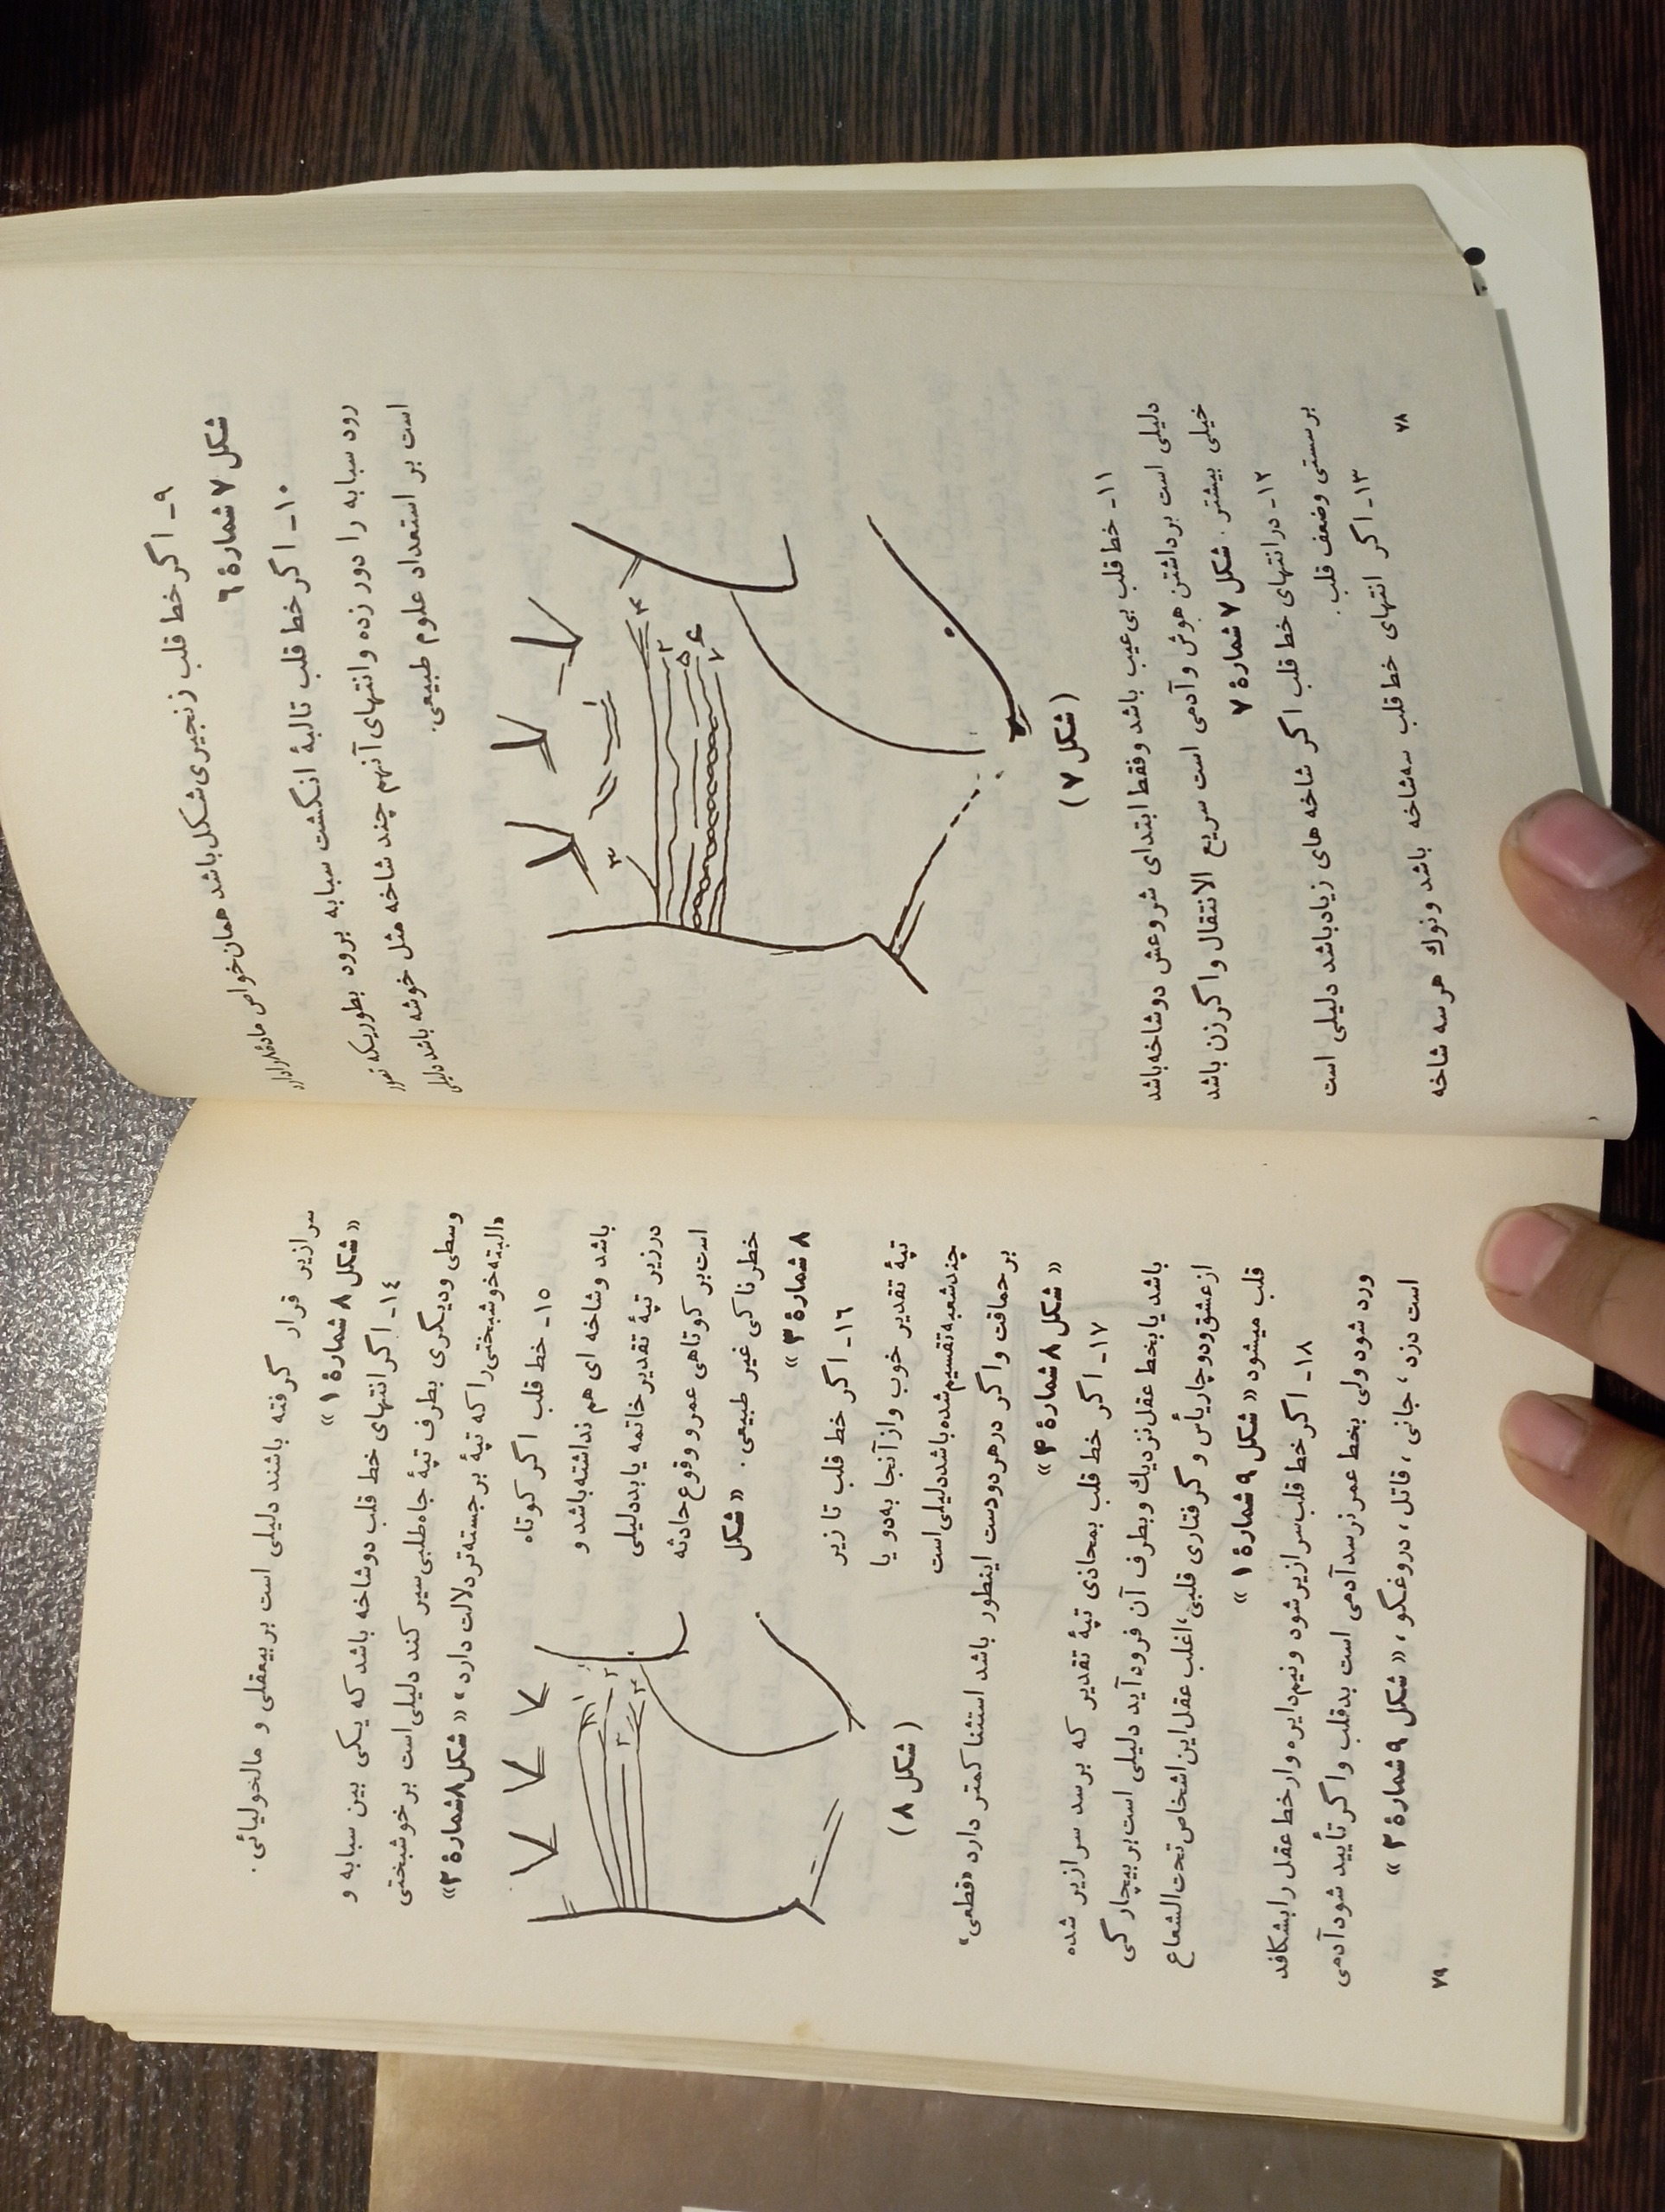 ۹ـ اگر خط قلب زنجیری‌شکل باشد همان خواص ماده
شکل ۷ شمارهٔ ۶
۱۰ـ اگر خط قلب تا لبهٔ انگشت سبابه برود بطوریکه
رود سبابه را دور زده و انتهای آنهم چند شاخه مثل خوشه باشد دلیل
است بر استعداد علوم طبیعی.
۳
۴
۲
۵
۶
۷
(شکل ۷)
۱۱ـ خط قلب بی‌عیب باشد و فقط ابتدای شروعش دوشاخه باشد
دلیلی است بر داشتن هوش و آدمی است سریع الانتقال و اگر زن باشد
خیلی بیشتر. شکل ۷ شمارهٔ ۷
۱۲ـ در انتهای خط قلب اگر شاخه های زیاد باشد دلیلی است
بر سستی وضعف قلب.
۱۳ـ اگر انتهای خط قلب سه‌شاخه باشد ونوك هر سه شاخه
۷۸
سرازیر قرار گرفته باشند دلیلی است بر بیعقلی و مالخولیائی.
«شکل ۸ شمارهٔ ۱»
۱٤ـ اگر انتهای خط قلب دوشاخه باشد که یکی بین سبابه و
وسطی ودیگری بطرف تپهٔ جاه‌طلبی سیر کند دلیلی است بر خوشبختی
«البته خوشبختی را که تپهٔ برجسته‌تر دلالت دارد» «شکل ۸ شمارهٔ ۲»
۱۵ـ خط قلب اگر کوتاه
باشد وشاخه ای هم نداشته باشد و
درزیر تپهٔ تقدیر خاتمه یابد دلیلی
است بر کوتاهی عمر و وقوع حادثه
خطرناکی غیر طبیعی. «شکل
۸ شمارهٔ ۳»
۱
۲
۳
(شکل ۸)
۱۶ـ اگر خط قلب تا زیر
تپهٔ تقدیر خوب و از آنجا به‌دو یا
چند شعبه تقسیم شده باشد دلیلی است
بر حماقت واگر در هر دو دست اینطور باشد استثنا کمتر دارد «قطعی»
«شکل ۸ شمارهٔ ۴»
۱۷ـ اگر خط قلب بمحاذی تپهٔ تقدیر که برسد سرازیر شده
باشد یا بخط عقل نزدیك وبطرف آن فرود آید دلیلی است بر بیچارگی
از عشق ودوچار یأس و گرفتاری قلبی، اغلب عقل این اشخاص تحت الشعاع
قلب میشود «شکل ۹ شمارهٔ ۱»
۱۸ـ اگر خط قلب سرازیر شود ونیم‌دایره وار خط عقل را بشکافد
ورد شود ولی بخط عمر نرسد آدمی است بدقلب واگر تأیید شود آدمی
است دزد، جانی، قاتل، دروغگو، «شکل ۹ شمارهٔ ۲»
۷۹